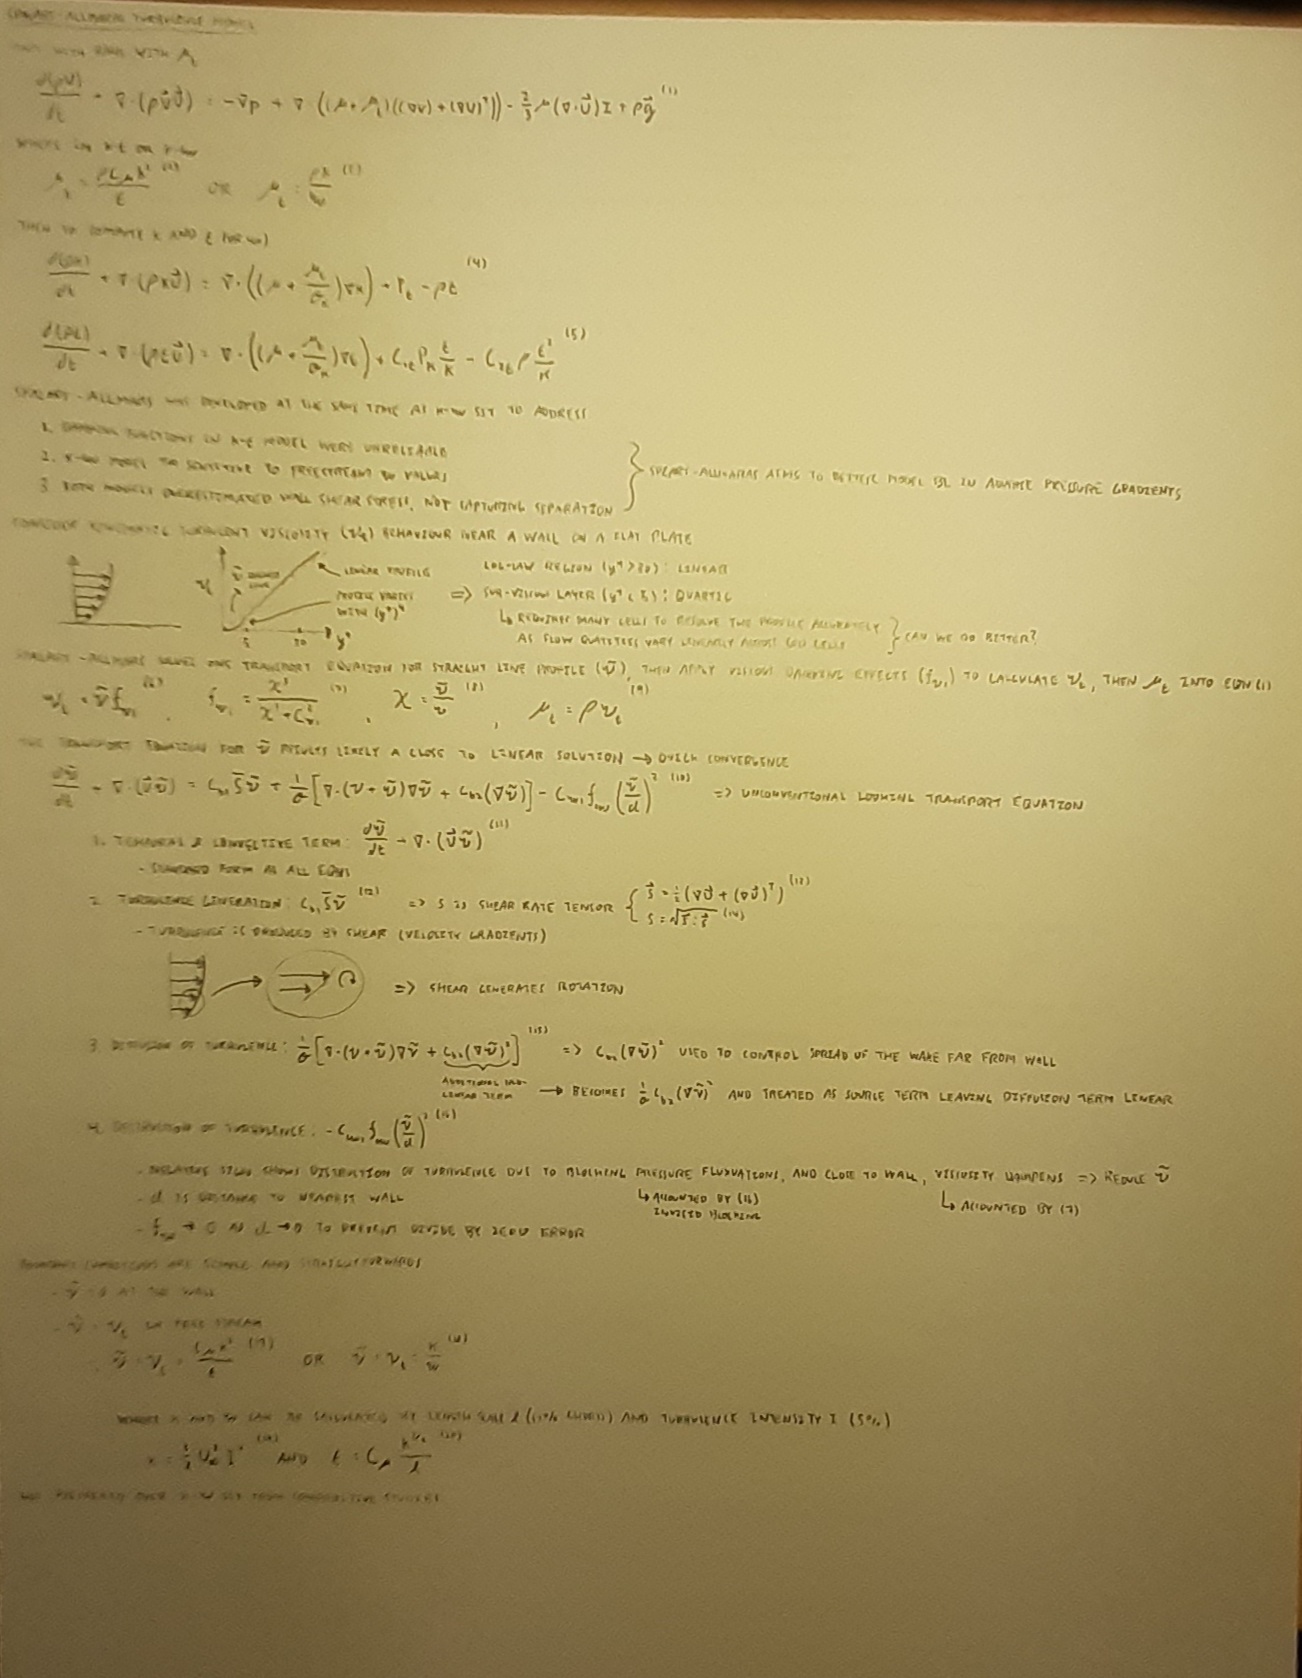 SPALART-ALLMARAS TURBULENCE MODEL
WITH RANS WITH μ_t
d(ρU)/dt + ∇·(ρU⃗U⃗) = -∇p + ∇·((μ+μ_t)((∇U)+(∇U)^T)) - 2/3 μ(∇·U⃗)I + ρg⃗ (1)
WHERE IN k-ε OR k-ω
μ_t = ρC_μk²/ε (2) OR μ_t = ρk/ω (3)
THEN TO COMPUTE K AND ε (OR ω)
d(ρk)/dt + ∇·(ρkU⃗) = ∇·((μ + μ_t/σ_k)∇k) + P_k - ρε (4)
d(ρε)/dt + ∇·(ρεU⃗) = ∇·((μ + μ_t/σ_k)∇ε) + C_1ε P_k ε/k - C_2ε ρ ε²/k (5)
SPALART-ALLMARAS WAS DEVELOPED AT THE SAME TIME AS K-ω SST TO ADDRESS
1. DAMPING FUNCTIONS IN K-ε MODEL WERE UNRELIABLE
2. K-ω MODEL TOO SENSITIVE TO FREESTREAM ω VALUES
3. BOTH MODELS OVERESTIMATED WALL SHEAR STRESS, NOT CAPTURING SEPARATION
SPALART-ALLMARAS AIMS TO BETTER MODEL BL IN ADVERSE PRESSURE GRADIENTS
CONSIDER KINEMATIC TURBULENT VISCOSITY (ν_t) BEHAVIOUR NEAR A WALL ON A FLAT PLATE
ν_t ν̃ LINEAR PROFILE
PROFILE VARIES WITH (y⁺)⁴
5 30 y⁺
LOG-LAW REGION (y⁺>30): LINEAR
=> SUB-VISCOUS LAYER (y⁺<5): QUARTIC
↳ REQUIRES MANY CELLS TO RESOLVE THE PROFILE ACCURATELY
AS FLOW QUANTITIES VARY LINEARLY ACROSS CELLS
CAN WE DO BETTER?
SPALART-ALLMARAS SOLVES ONE TRANSPORT EQUATION FOR STRAIGHT LINE PROFILE (ν̃), THEN APPLY VISCOUS DAMPING EFFECTS (f_v1) TO CALCULATE ν_t, THEN μ_t INTO EQN (1)
ν_t = ν̃f_v1 (6), f_v1 = χ³/(χ³+C³_v1) (7), χ = ν̃/ν (8), μ_t = ρν_t (9)
THE TRANSPORT EQUATION FOR ν̃ RESULTS LIKELY A CLOSE TO LINEAR SOLUTION → QUICK CONVERGENCE
dν̃/dt + ∇·(U⃗ν̃) = C_b1 S̃ν̃ + 1/σ[∇·(ν+ν̃)∇ν̃ + C_b2(∇ν̃)] - C_w1 f_w (ν̃/d)² (10) => UNCONVENTIONAL LOOKING TRANSPORT EQUATION
1. TEMPORAL & CONVECTIVE TERM: dν̃/dt + ∇·(U⃗ν̃) (11)
- STANDARD FORM AS ALL EQNS
2. TURBULENCE GENERATION: C_b1 S̃ν̃ (12) => S IS SHEAR RATE TENSOR { S⃗ = ½(∇U⃗ + (∇U⃗)^T) (13)
S = √S⃗:S⃗ (14)
- TURBULENCE IS PRODUCED BY SHEAR (VELOCITY GRADIENTS)
=> SHEAR GENERATES ROTATION
3. DIFFUSION OF TURBULENCE: 1/σ[∇·(ν+ν̃)∇ν̃ + C_b2(∇ν̃)²] (15) => C_b2(∇ν̃)² USED TO CONTROL SPREAD OF THE WAKE FAR FROM WALL
ADDITIONAL NON-LINEAR TERM → BECOMES 1/σ C_b2(∇ν̃)² AND TREATED AS SOURCE TERM LEAVING DIFFUSION TERM LINEAR
4. DESTRUCTION OF TURBULENCE: -C_w1 f_w (ν̃/d)² (16)
- NEGATIVE SIGN SHOWS DISTRUCTION OF TURBULENCE DUE TO BLOCKING PRESSURE FLUXUATIONS, AND CLOSE TO WALL, VISCOSITY DAMPENS => REDUCE ν̃
- d IS DISTANCE TO NEAREST WALL
↳ ACCOUNTED BY (16)
INVISCID BLOCKING
↳ ACCOUNTED BY (7)
- f_w → 0 AS d → 0 TO PREVENT DIVIDE BY ZERO ERROR
BOUNDARY CONDITIONS ARE SIMPLE AND STRAIGHTFORWARDS
- ν̃ = 0 AT THE WALL
- ν̃ = ν_t IN FREE STREAM
ν̃ = ν_t = C_μk²/ε (17) OR ν̃ = ν_t = k/ω (18)
WHERE K AND ω CAN BE CALCULATED BY LENGTH SCALE l AND TURBULENCE INTENSITY I (5%)
k = 3/2 U²_∞ I² (19) AND ε = C_μ k^(3/2)/l (20)
NOT PREFERRED OVER K-ω SST FROM COMPARATIVE STUDIES